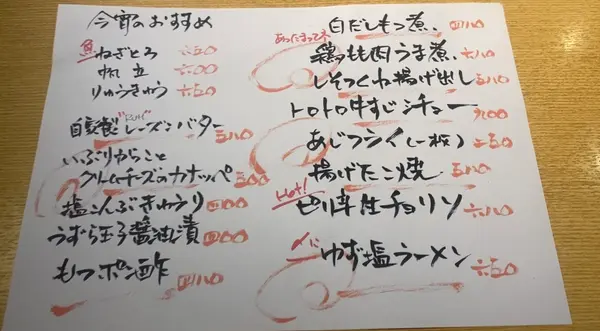 今宵のおすすめ
魚 ねぎとろ 六五〇
帆立 六〇〇
りゅうきゅう 六五〇
自家製レーズンバター 五八〇
いぶりがっこと
クリームチーズのカナッペ 五〇〇
塩こんぶきゅうり 四〇〇
うずら玉子醤油漬 四〇〇
もつポン酢 四八〇
白だしもつ煮 四八〇
あったまってネ
鶏もも肉うま煮 六八〇
しそつくね揚げ出し 五八〇
トロトロ牛すじシチュー 九〇〇
あじフライ(一枚) 三五〇
揚げたこ焼 五八〇
Hot!
ピリ辛生チョリソ 六八〇
〆に
ゆず塩ラーメン 六五〇